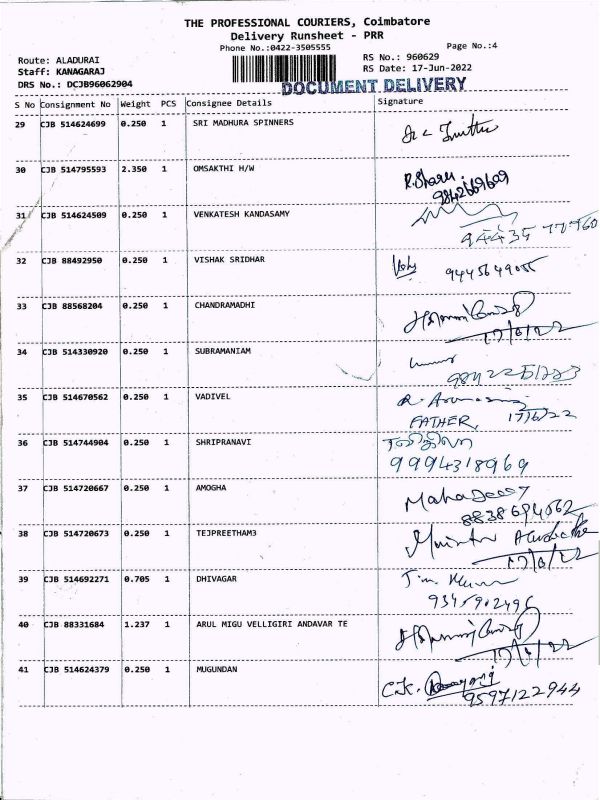 THE PROFESSIONAL COURIERS, Coimbatore
Delivery Runsheet - PRR
Phone No.:0422-3505555
Page No.:4
Route: ALADURAI
RS No.: 960629
Staff: KANAGARAJ
RS Date: 17-Jun-2022
DRS No.: DCJB96062904
DOCUMENT DELIVERY
S No Consignment No Weight PCS Consignee Details Signature
29 CJB 514624699 0.250 1 SRI MADHURA SPINNERS
30 CJB 514795593 2.350 1 OMSAKTHI H/W
9842669609
31 CJB 514624509 0.250 1 VENKATESH KANDASAMY
32 CJB 88492950 0.250 1 VISHAK SRIDHAR
33 CJB 88568204 0.250 1 CHANDRAMADHI
17/6/22
34 CJB 514330920 0.250 1 SUBRAMANIAM
35 CJB 514670562 0.250 1 VADIVEL
FATHER, 17/6/22
36 CJB 514744904 0.250 1 SHRIPRANAVI
9994318969
37 CJB 514720667 0.250 1 AMOGHA
8838694062
38 CJB 514720673 0.250 1 TEJPREETHAM3
17/6/22
39 CJB 514692271 0.705 1 DHIVAGAR
9345902496
40 CJB 88331684 1.237 1 ARUL MIGU VELLIGIRI ANDAVAR TE
17/6/22
41 CJB 514624379 0.250 1 MUGUNDAN
C.K.
9597122944